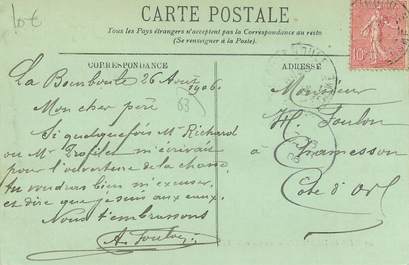 lot
CARTE POSTALE
Tous les Pays étrangers n'acceptent pas la Correspondance au recto
(Se renseigner à la Poste).
CORRESPONDANCE
La Bourboule 26 Août
1906.
63
Mon cher père
Si quelques fois Mr Richard
ou Mr m'écrivais
pour l'ouverture de la chasse
tu voudras bien m'excuser,
et dire que je suis aux eaux.
Nous t'embrassons
A. Foulon
ADRESSE
Monsieur
H. Foulon
à Chamesson
Cote d'Or
10